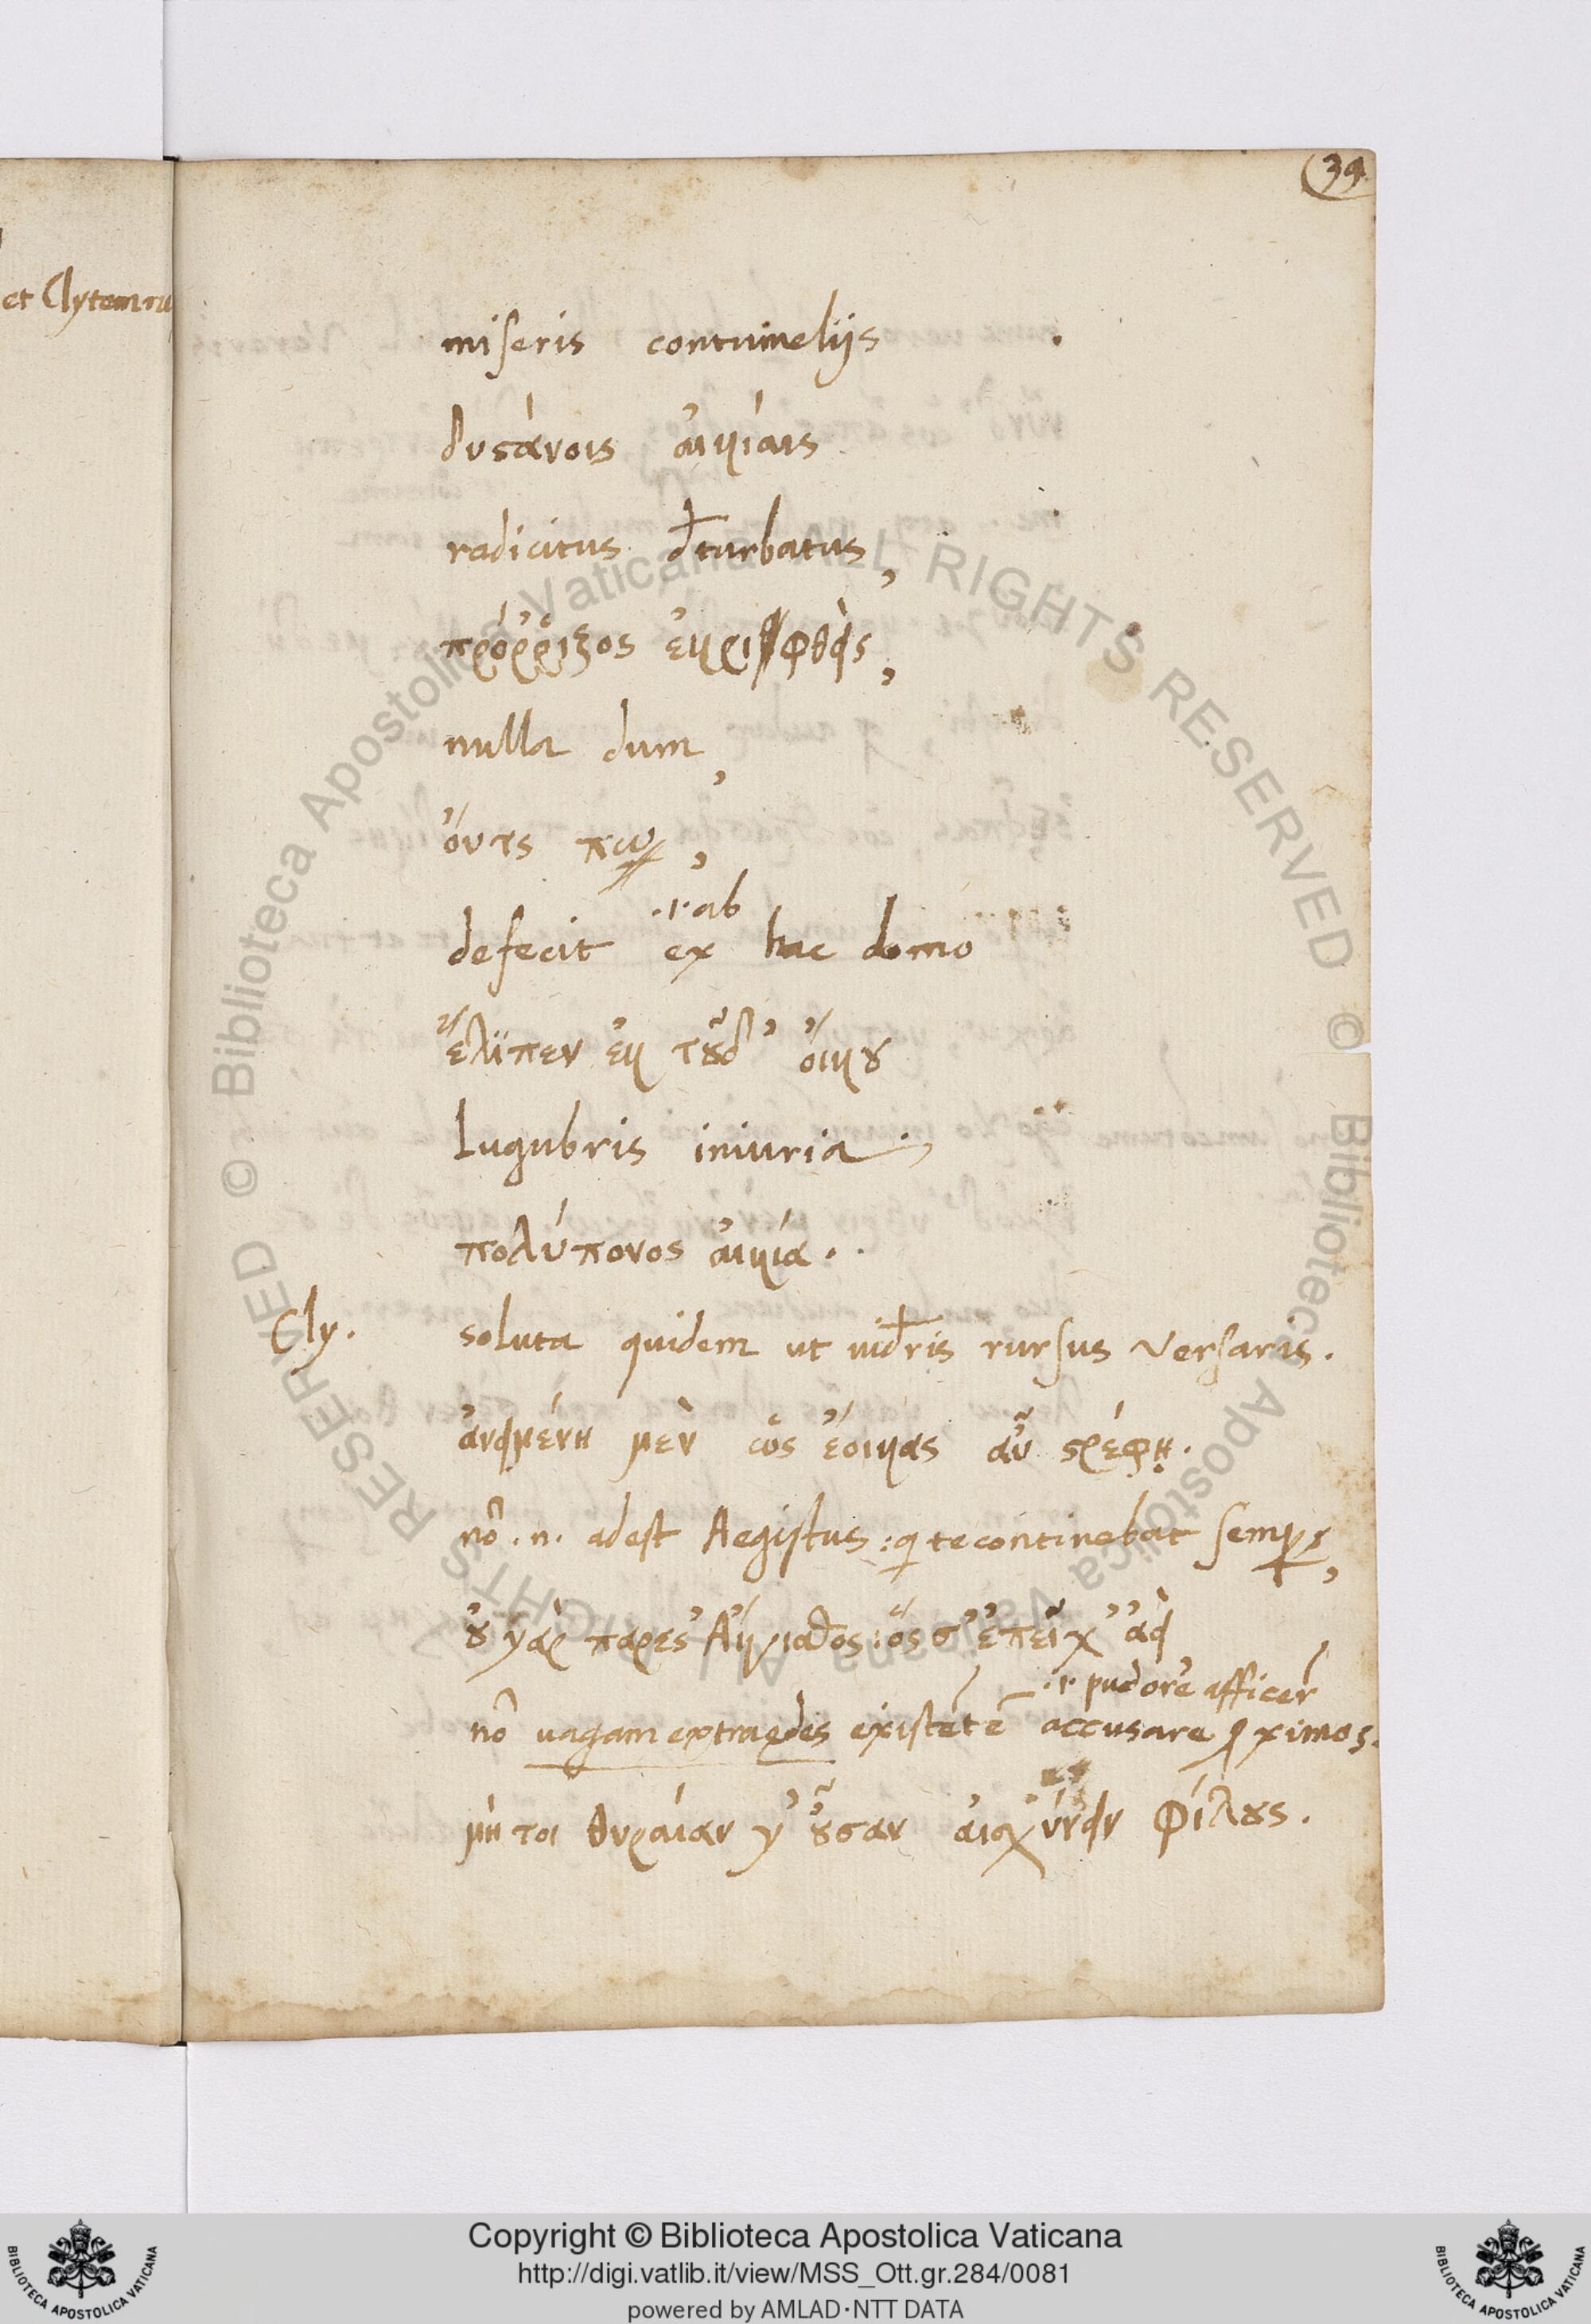 39
et Clytemn
miseris contumelijs .
δυστάνοις αἰκίαις
radicitus deturbatus,
πρόῤῥιζος ἐκριφθεὶς,
nulla dum,
ὄυτε πω,
.i. ab
defecit ex hac domo
ἔλιπεν ἐκ τοῦδ' ὄικου
lugubris iniuria.
πολύπονος αἰκία..
Cly. soluta quidem ut uideris rursus versaris.
ἀνειμένη μὲν ὡς ἔοικας αὖ στρέφῃ.
nō .n. adest Aegistus: q te continebat semper,
οὐ γὰρ πάρεστ' Αἴγισθος: ὅς σ' ἐπεῖχ' ἀεὶ
.i. pudore afficere
nō uagam extra edes existētē accusare proximos.
μή τοι θυραίαν γ' οὖσαν ἀισχύνειν φίλους.
© Biblioteca Apostolica Vaticana ALL RIGHTS RESERVED © Biblioteca Apostolica Vaticana ALL RIGHTS RESERVED
Copyright © Biblioteca Apostolica Vaticana
http://digi.vatlib.it/view/MSS_Ott.gr.284/0081
powered by AMLAD·NTT DATA
BIBLIOTECA APOSTOLICA VATICANA
BIBLIOTECA APOSTOLICA VATICANA